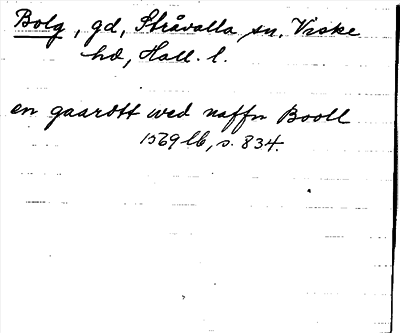 Bolg, gd, Stråvalla sn. Viske
hd, Hall. l.
en gaardtt wed naffn Booll
1569 lb, s. 834.